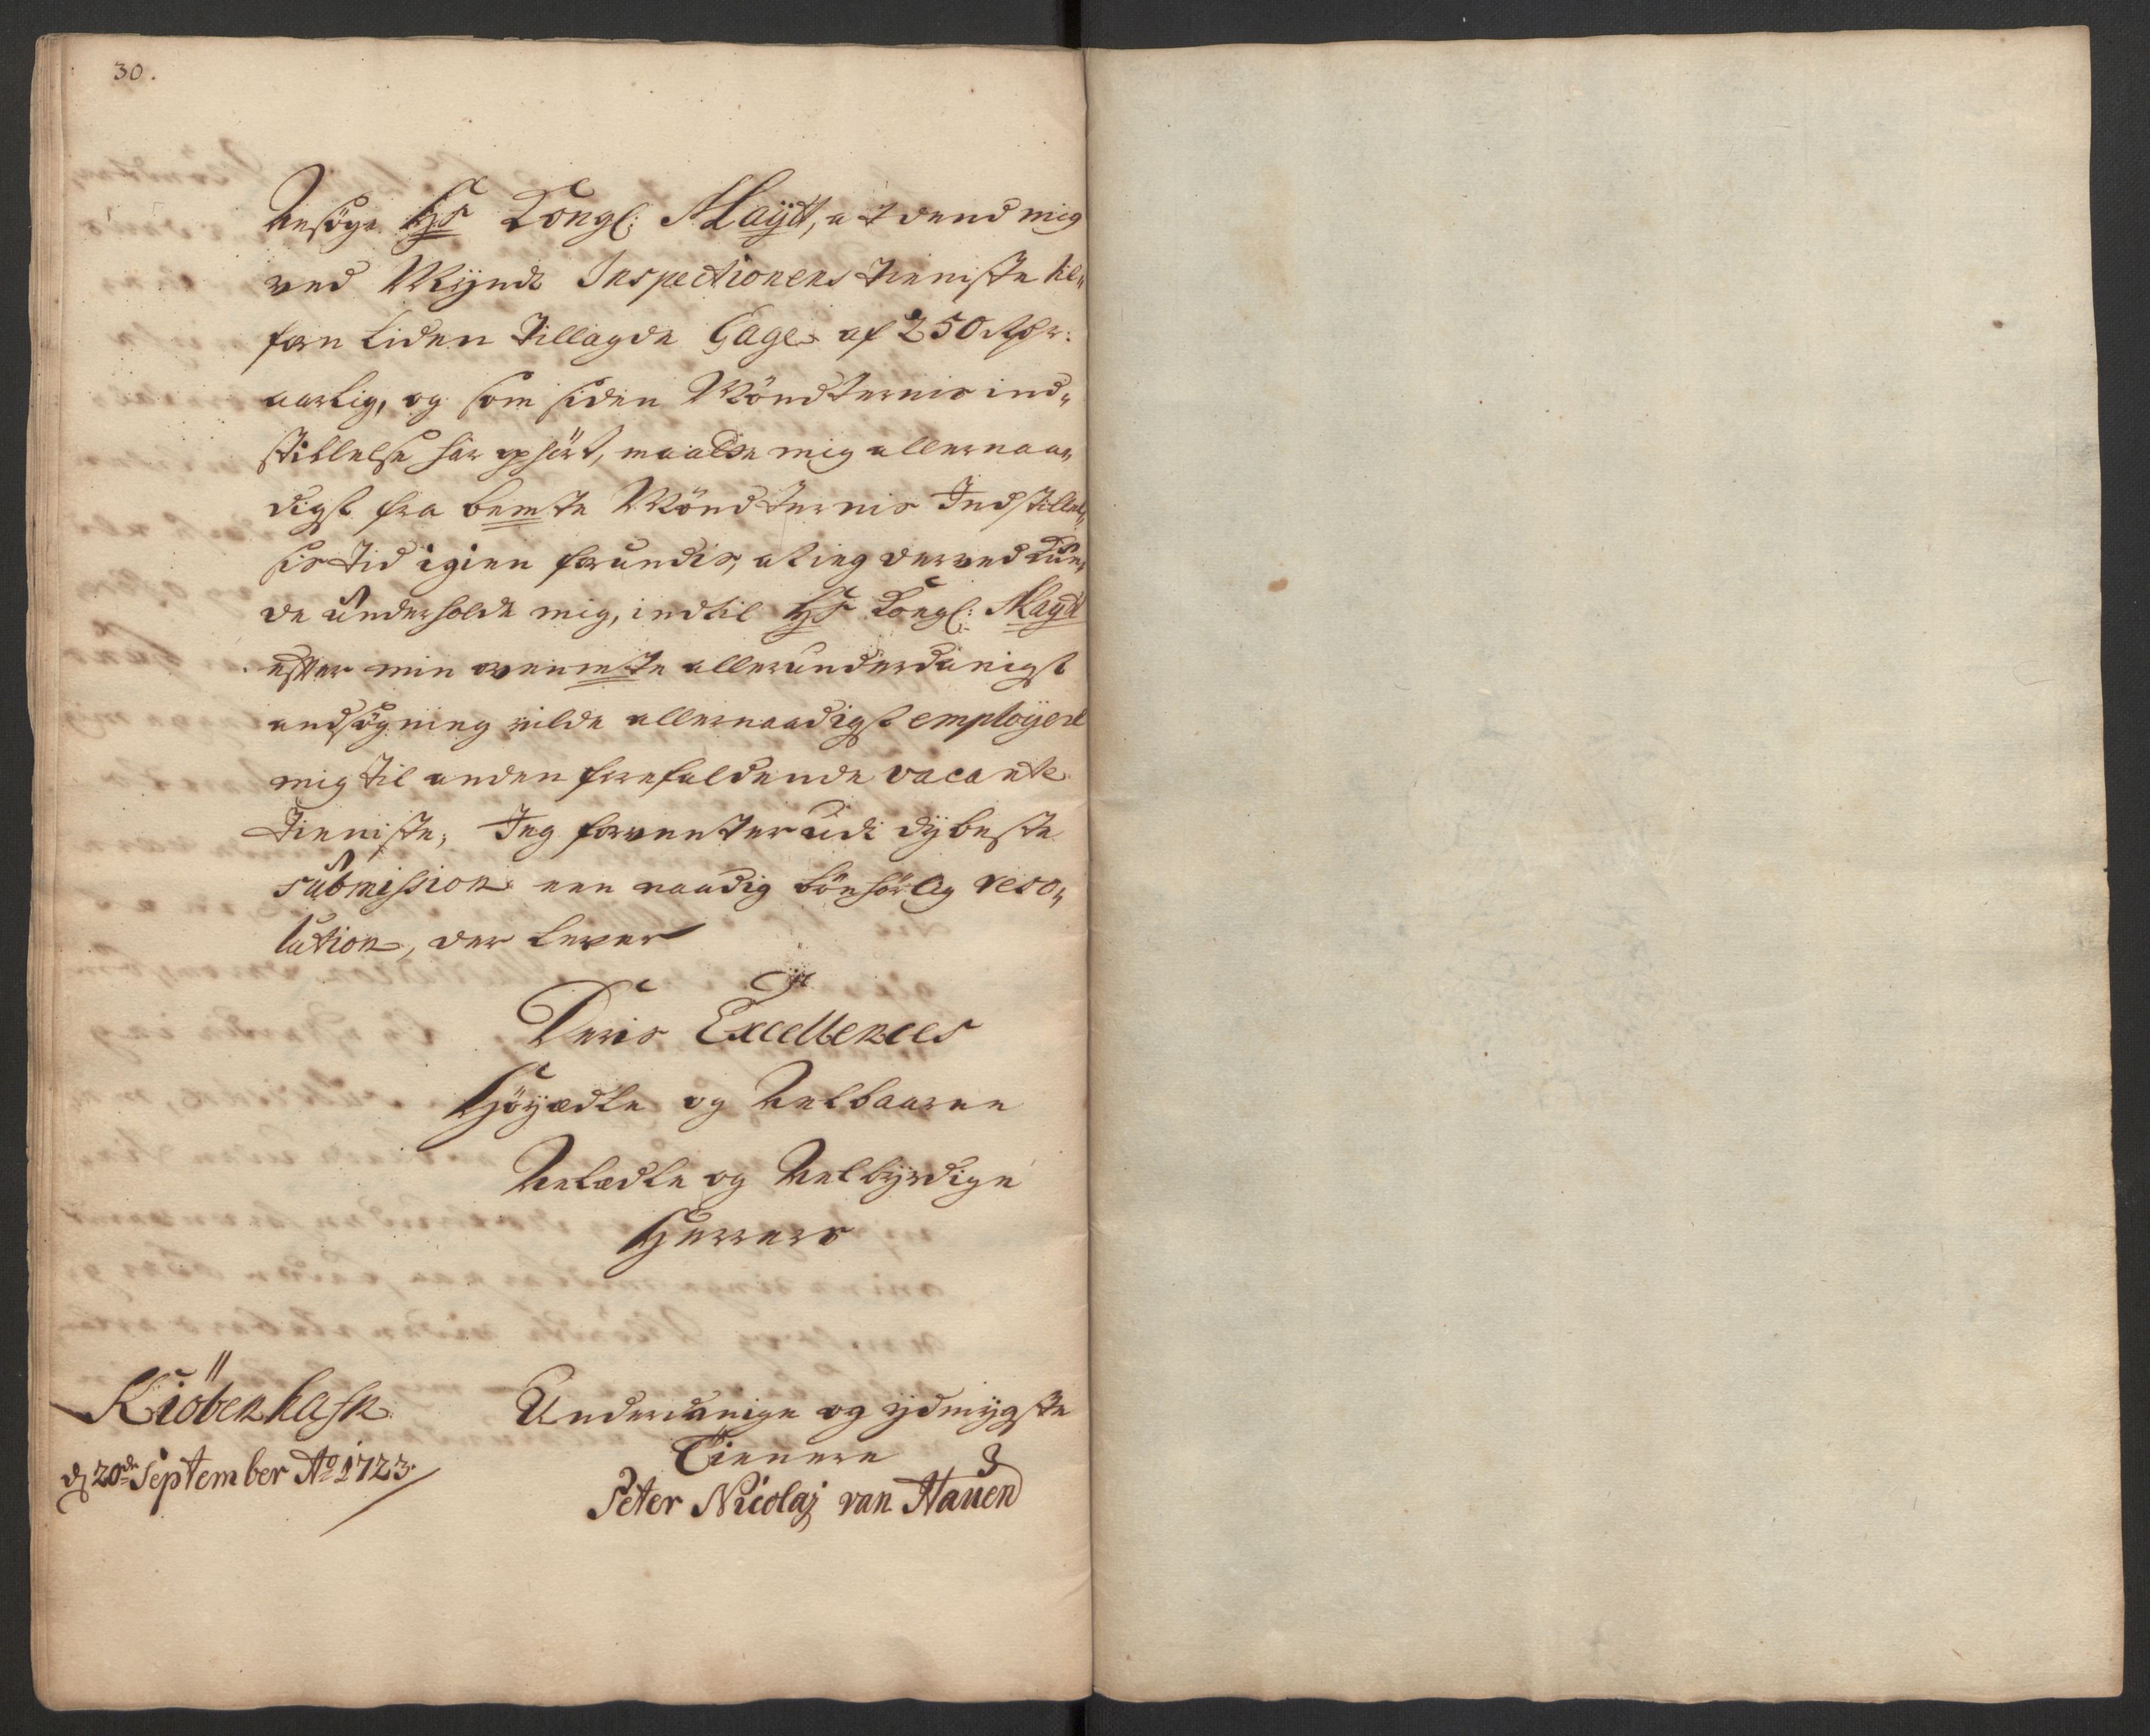 30.
Ansöge Hs Kongl: Maÿtt, at dend mig
ved Mÿndt Inspectionens tieniste til„
forn tiden tillagde Gage af 250 Rdr:
aarlig, og som siden Mönsternis ind„
stillelse har ophört, maatte mig allernaa„
digst fra bemte Mönsternis Indstillel„
sis tid igien forundis, at ieg derved kun„
de underholde mig, indtil Hs Kongl: Maÿtt
efter min ovenmte allerunderdanigst
ansögning vilde allernaadigst emploÿere
mig til anden forefaldende vacante
tieniste, Jeg forventer udi dÿbeste
submission een naadig bönhörlig reso„
lution, der lever
Deris Excellences
Höÿædle og Velbaarne
Velædle og Velbÿrdige
Herrers
Kiöbenhafn
d 20de September Ao 1723.
Underdanige og ÿdmÿgste
Tienere
Peter Nicolaj van Hauen